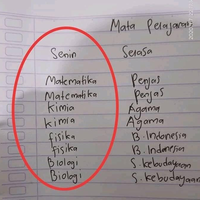 Mata Pelajaran
Senin Selasa
Matematika Penjas
Matematika Penjas
Kimia Agama
Kimia Agama
Fisika B. Indonesia
Fisika B. Indonesia
Biologi S. kebudayaan
Biologi S. kebudayaan